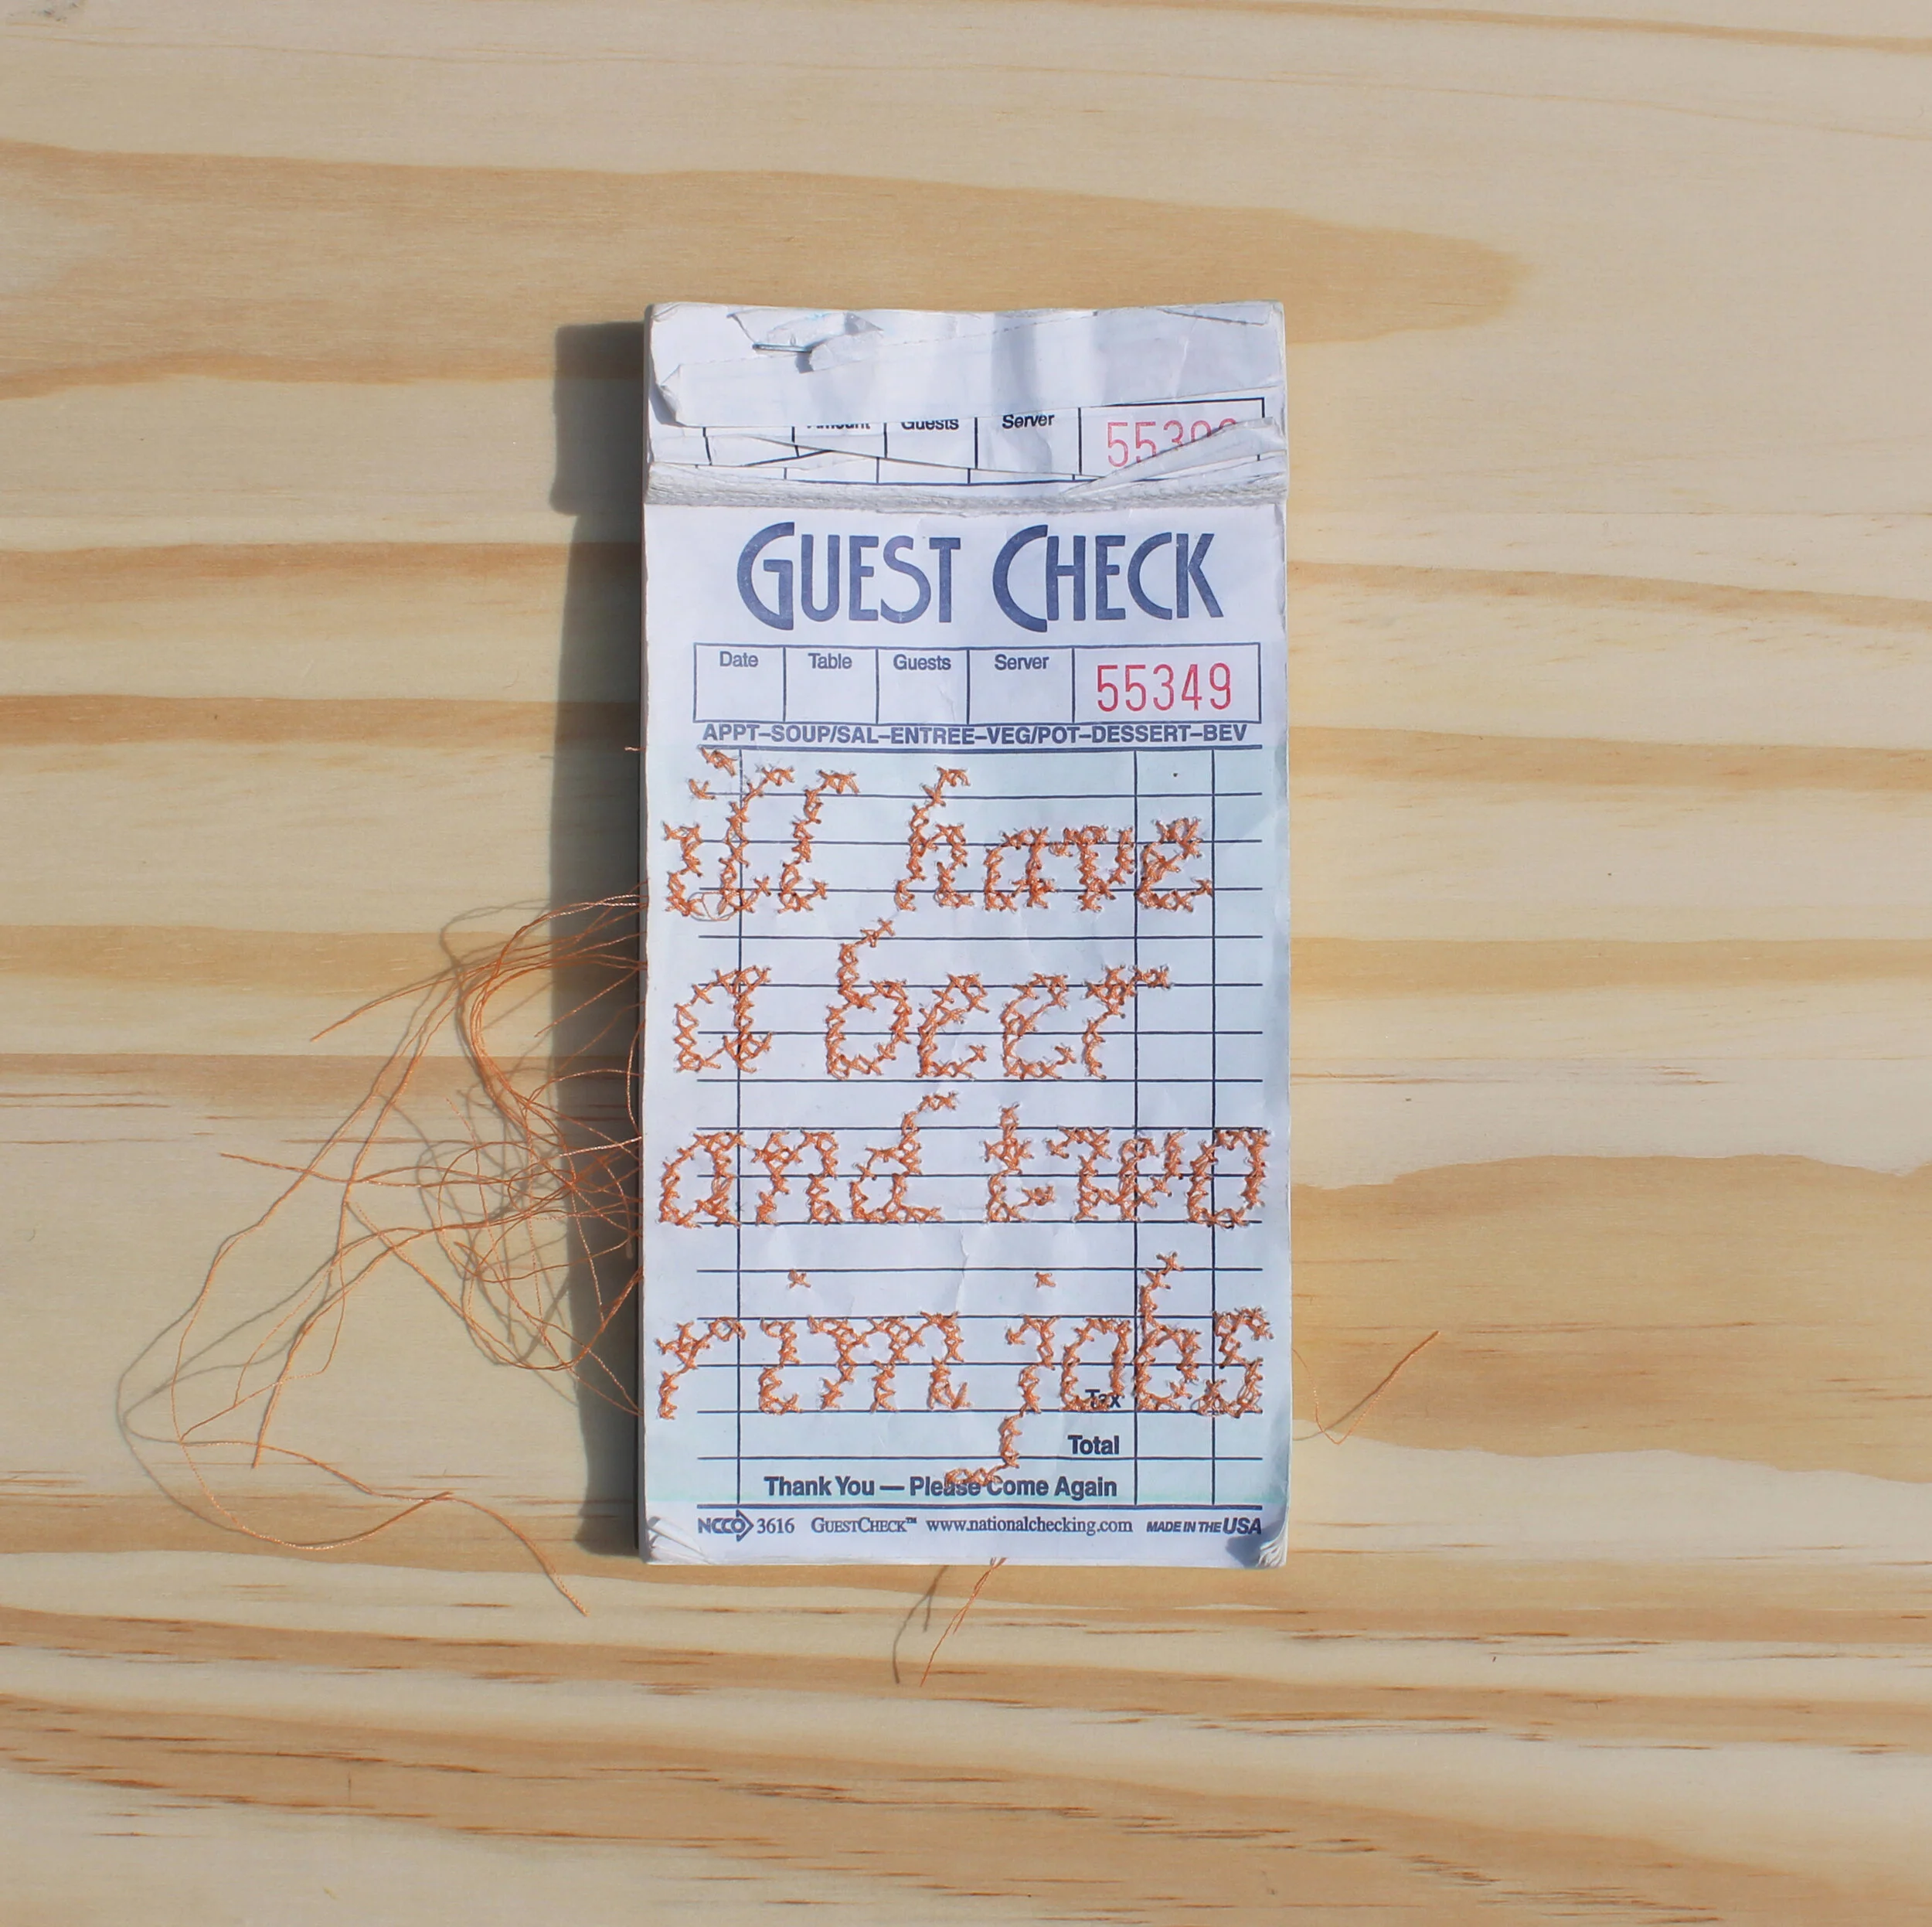 Amount Guests Server
GUEST CHECK
Date Table Guests Server 55349
APPT–SOUP/SAL–ENTREE–VEG/POT–DESSERT–BEV
i'll have
a beer
and two
rim jobs
Tax
Total
Thank You — Please Come Again
NCCO 3616 GUESTCHECK™ www.nationalchecking.com MADE IN THE USA